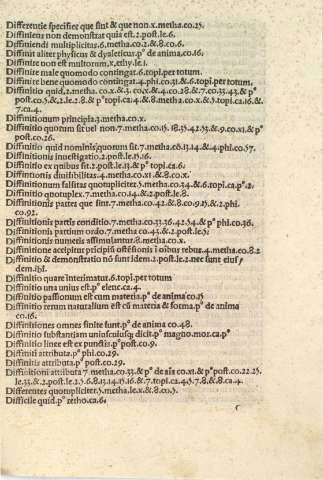 Differentie specifice que sint & que non.x.metha.co.25.
Diffiniens non demonstrat quia est.2.post.le.6.
Diffiniendi multiplicitas.6.metha.co.2.&.8.co.6.
Diffinit aliter physicus & dyalecticus.pº de anima.co.16.
Diffinire non est multorum,x,ethy.le.1.
Diffinire male quomodo contingat.6.topi.per totum.
Diffinire bene quomodo contingat.4.phi.co.31.&.6.topi.per totum.
Diffinitio quid,2.metha.co.x.&.3.co.x.&.4.co.28.&.7.co.33.43.& pº
post.co.5.&.2.le.2.8.& pº topi.ca.4.&.8.metha.co.x.&.5.topi.ca.16.&
.7.ca.4.
Diffinitionum principia.3.metha.co.x.
Diffinitio quorum sit vel non.7.metha.co.15.18.35.42.53.&.9.co.x1.& pº
post.co.26.
Diffinitio quid nominis;quorum sit.7.metha.co.13.14.&.4.phi.co.57.
Diffinitionis inuestigatio.2.post.le.15.16.
Diffinitio ex quibus sit.2.post.le.13.& pº topi.ca.6.
Diffinitionis diuisibilitas.4.metha.co.x1.&.8.co.x.
Diffinitionum falsitas quotupliciter.5.metha.co.34.&.6.topi.ca.pº.2.
Diffinitio quotuplex.7.metha.co.14.&.2.post.le.8.
Diffinitionis partes que sint.7.metha.co.42.&.8.co.9.15.&.2.phi.
co.92.
Diffinitionis partis conditio.7.metha.co.33.36.42.54.& pº phi.co.36.
Diffinitionis partium ordo.7.metha.co.43.&.2.post.le.5.
Diffinitionis numeris assimulantur.8.metha.co.x.
Diffinitione accipitur pricipiū ostēsionis i oibus rebus.4.metha.co.8.2
Diffinitio & demonstratio nō sunt idem.2.post.le.2.nec sunt eiusdem
.ibi.
Diffinitio quare interimatur.6.topi.per totum
Diffinitio una unius est.pº elenc.ca.4.
Diffinitio passionum est cum materia.pº de anima.co.15
Diffinitio rerum naturalium est cū materia & forma.pº de anima
co.16.
Diffinitiones omnes finite sunt.pº de anima co.48.
Diffinitio substantiam uniuscuiusq; dicit.pº magno.mor.ca.pº
Diffinitio linee est ex punctis.pº post.co.9.
Diffiniti attributa.pº phi.co.29.
Diffinitis attributa.pº post.co.29.
Diffinitioni attributa 7.metha.co.33.& pº de aīa co.x1.& pº post.co.22.25.
le.33.&.2.post.le.2.5.6.8.13.14.15.16.&.7.topi.ca.4.5.7.8.&.8.ca.4.
Differentes quotupliciter.5.metha.le.x.&.8.co.5.
Difficile quid.pº retho.ca.6.